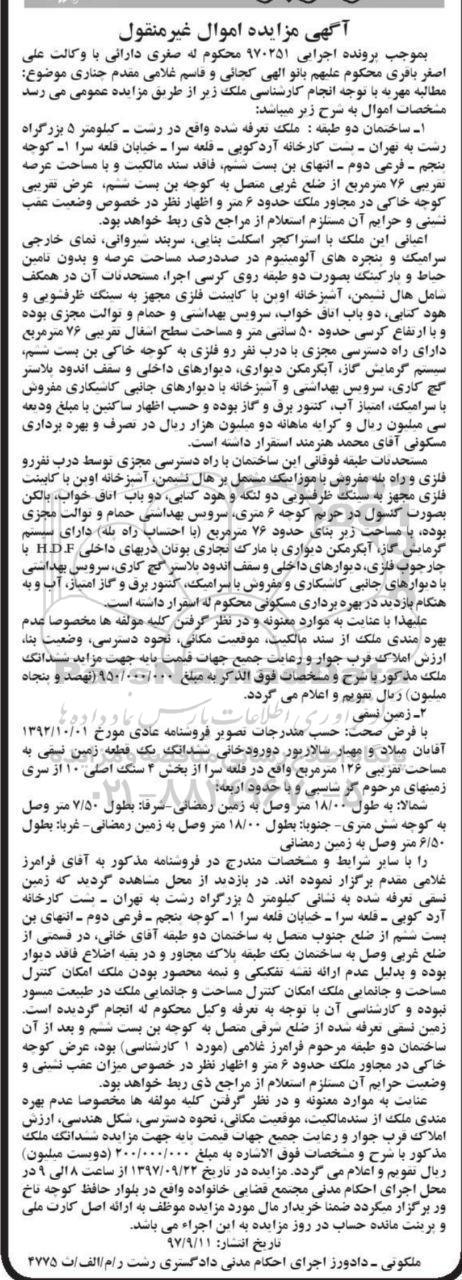 آگهی مزایده اموال غیرمنقول
بموجب پرونده اجرایی ۹۷۰۲۵۱ محکوم له صغری دارائی با وکالت علی
اصغر باقری محکوم علیهم بانو الهی کجائی و قاسم غلامی مقدم چناری موضوع:
مطالبه مهریه با توجه انجام کارشناسی ملک زیر از طریق مزایده عمومی می رسد
مشخصات اموال به شرح زیر میباشد:
۱ـ ساختمان دو طبقه : ملک تعرفه شده واقع در رشت ـ کیلومتر ۵ بزرگراه
رشت به تهران ـ پشت کارخانه آردکوبی ـ قلعه سرا ـ خیابان قلعه سرا ۱ـ کوچه
پنجم ـ فرعی دوم ـ انتهای بن بست ششم، فاقد سند مالکیت و با مساحت عرصه
تقریبی ۷۶ مترمربع از ضلع غربی متصل به کوچه بن بست ششم، عرض تقریبی
کوچه خاکی در مجاور ملک حدود ۶ متر و اظهار نظر در خصوص وضعیت عقب
نشینی و حرایم آن مستلزم استعلام از مراجع ذی ربط خواهد بود.
اعیانی این ملک با استراکچر اسکلت بنایی، سربند شیروانی، نمای خارجی
سرامیک و پنجره های آلومینیوم در صددرصد مساحت عرصه و بدون تامین
حیاط و پارکینگ بصورت دو طبقه روی کرسی اجرا، مستحدثات آن در همکف
شامل هال نشیمن، آشپزخانه اوپن با کابینت فلزی مجهز به سینگ ظرفشویی و
هود کتابی، دو باب اتاق خواب، سرویس بهداشتی و حمام و توالت مجزی بوده
و با ارتفاع کرسی حدود ۵۰ سانتی متر و مساحت سطح اشغال تقریبی ۷۶ مترمربع
دارای راه دسترسی مجزی با درب نفر رو فلزی به کوچه خاکی بن بست ششم،
سیستم گرمایش گاز، آبگرمکن دیواری، دیوارهای داخلی و سقف اندود پلاستر
گچ کاری، سرویس بهداشتی و آشپزخانه با دیوارهای جانبی کاشیکاری مفروش
با سرامیک، امتیاز آب، کنتور برق و گاز بوده و حسب اظهار ساکنین با مبلغ ودیعه
سی میلیون ریال و کرایه ماهانه دو میلیون هزار ریال در تصرف و بهره برداری
مسکونی آقای محمد هنرمند استقرار داشته است.
مستحدثات طبقه فوقانی این ساختمان با راه دسترسی مجزی توسط درب نفررو
فلزی و راه پله مفروش با موزاییک مشتمل بر هال نشیمن، آشپزخانه اوپن با کابینت
فلزی مجهز به سینگ ظرفشویی دو لنگه و هود کتابی، دو باب اتاق خواب، بالکن
بصورت کنسول در حریم کوچه ۶ متری، سرویس بهداشتی حمام و توالت مجزی
بوده، با مساحت زیر بنای حدود ۷۶ مترمربع (با احتساب راه پله) دارای سیستم
گرمایش گاز، آبگرمکن دیواری با مارک تجاری بوتان دربهای داخلی H.D.F با
چارچوب فلزی، دیوارهای داخلی و سقف اندود پلاستر گچ کاری، سرویس بهداشتی
با دیوارهای جانبی کاشیکاری و مفروش با سرامیک، کنتور برق و گاز امتیاز، آب و به
هنگام بازدید در بهره برداری مسکونی محکوم له استقرار داشته است.
علیهذا با عنایت به موارد معنونه و در نظر گرفتن کلیه مولفه ها مخصوصا عدم
بهره مندی ملک از سند مالکیت، موقعیت مکانی، نحوه دسترسی، وضعیت بنا،
ارزش املاک قرب جوار و رعایت جمیع جهات قیمت پایه جهت مزاید ششدانگ
ملک مذکور با شرح و مشخصات فوق الذکر به مبلغ ۹۵۰/۰۰۰/۰۰۰ (نهصد و پنجاه
میلیون) ریال تقویم و اعلام می گردد.
۲ـ زمین نسقی
با فرض صحت: حسب مندرجات تصویر فروشنامه عادی مورخ ۱۳۹۲/۱۰/۰۱
آقایان میلاد و مهیار سالارپور دورودخانی ششدانگ یک قطعه زمین نسقی به
مساحت تقریبی ۱۲۶ مترمربع واقع در قلعه سرا از بخش ۴ سنگ اصلی ۱۰ از سری
زمینهای مرحوم گرشاسبی و با حدود اربعه:
شمالا: به طول ۱۸/۰۰ متر وصل به زمین رمضانی-شرقا: بطول ۷/۵۰ متر وصل
به کوچه شش متری- جنوبا: بطول ۱۸/۰۰ متر وصل به زمین رمضانی- غربا: بطول
۶/۵۰ متر وصل به زمین رمضانی
را با سایر شرایط و مشخصات مندرج در فروشنامه مذکور به آقای فرامرز
غلامی مقدم برگزار نموده اند. در بازدید از محل مشاهده گردید که زمین
نسقی تعرفه شده به نشانی کیلومتر ۵ بزرگراه رشت به تهران ـ پشت کارخانه
آرد کوبی ـ قلعه سرا ـ خیابان قلعه سرا ۱ـ کوچه پنجم ـ فرعی دوم ـ انتهای بن
بست ششم از ضلع جنوب متصل به ساختمان دو طبقه آقای خانی، در قسمتی از
ضلع غربی وصل به ساختمان یک طبقه پلاک مجاور و در بقیه اضلاع فاقد دیوار
بوده و بدلیل عدم ارائه نقشه تفکیکی و نیمه محصور بودن ملک امکان کنترل
مساحت و جانمایی ملک امکان کنترل مساحت و جانمایی ملک در طبیعت میسور
نبوده و کارشناسی آن با توجه به تعرفه وکیل محکوم له انجام گردیده است.
زمین نسقی تعرفه شده از ضلع شرقی متصل به کوچه بن بست ششم و بعد از آن
ساختمان دو طبقه مرحوم فرامرز غلامی (مورد ۱ کارشناسی) بود، عرض کوچه
خاکی در مجاور ملک حدود ۶ متر و اظهار نظر در خصوص میزان عقب نشینی و
وضعیت حرایم آن مستلزم استعلام از مراجع ذی ربط خواهد بود.
عنایت به موارد معنونه و در نظر گرفتن کلیه مولفه ها مخصوصا عدم بهره
مندی ملک از سندمالکیت، موقعیت مکانی، نحوه دسترسی، شکل هندسی، ارزش
املاک قرب جوار و رعایت جمیع جهات قیمت پایه جهت مزایده ششدانگ ملک
مذکور با شرح و مشخصات فوق الاشاره به مبلغ ۲۰۰/۰۰۰/۰۰۰ (دویست میلیون)
ریال تقویم و اعلام می گردد. مزایده در تاریخ ۱۳۹۷/۰۹/۲۲ از ساعت ۸ الی ۹ در
محل اجرای احکام مدنی مجتمع قضایی خانواده واقع در بلوار حافظ کوچه تاخ
ور برگزار میگردد ضمنا خریدار مال مورد مزایده موظف به ارائه اصل کارت ملی
و پرینت مانده حساب در روز مزایده به این اجراء می باشد.
تاریخ انتشار: ۹۷/۹/۱۱
ملکوتی ـ دادورز اجرای احکام مدنی دادگستری رشت ر/م/الف/ث ۴۷۷۵